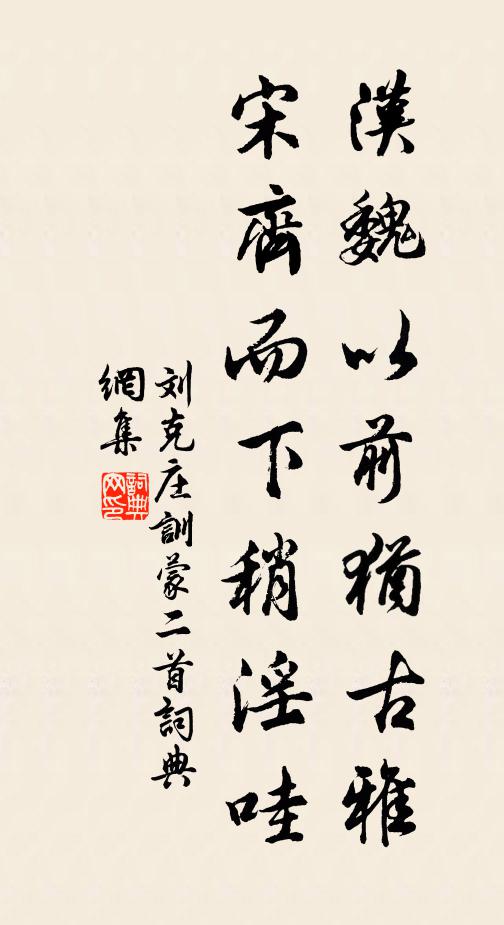 漢魏以前猶古雅
宋齊而下稍淫哇
刘克庄訓蒙二首詞典
網集
詞典
网印